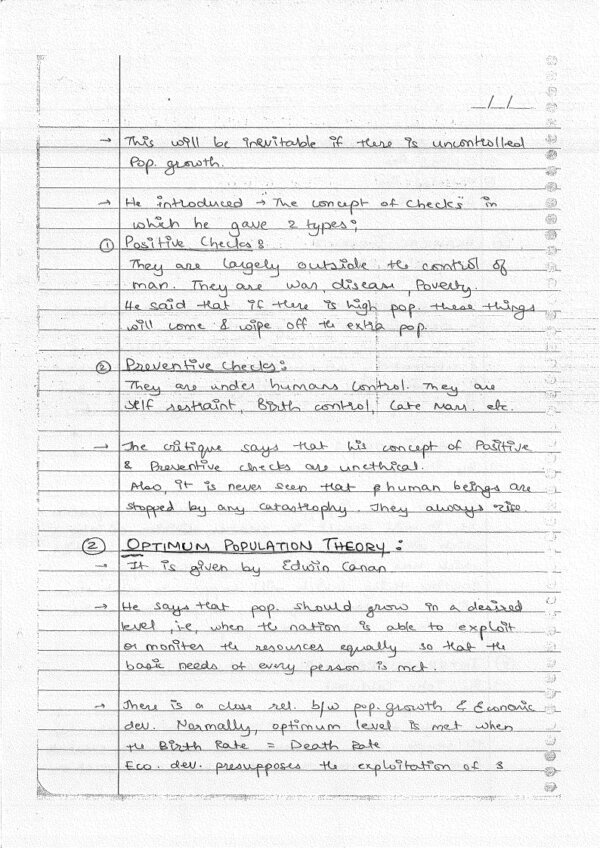 _/_/_
→ This will be inevitable if there is uncontrolled
Pop. growth.
→ He introduced → "The concept of Checks" in
which he gave 2 types:
① Positive Checks:
They are largely outside the control of
man. They are war, disease, Poverty.
He said that if there is high pop. these things
will come & wipe off the extra pop.
② Preventive Checks:
They are under humans control. They are
self restraint, Birth control, Late Marr. etc.
→ The critique says that his concept of Positive
& Preventive checks are unethical.
Also, it is never seen that human beings are
stopped by any catastrophy. They always rise
② OPTIMUM POPULATION THEORY:
→ It is given by Edwin Canan.
→ He says that pop. should grow in a desired
level, i.e, when the nation is able to exploit
or moniter the resources equally so that the
basic needs of every person is met.
→ There is a close rel. b/w pop. growth & Economic
dev. Normally, optimum level is met when
the Birth Rate = Death Rate
Eco. dev. presupposes the exploitation of 3